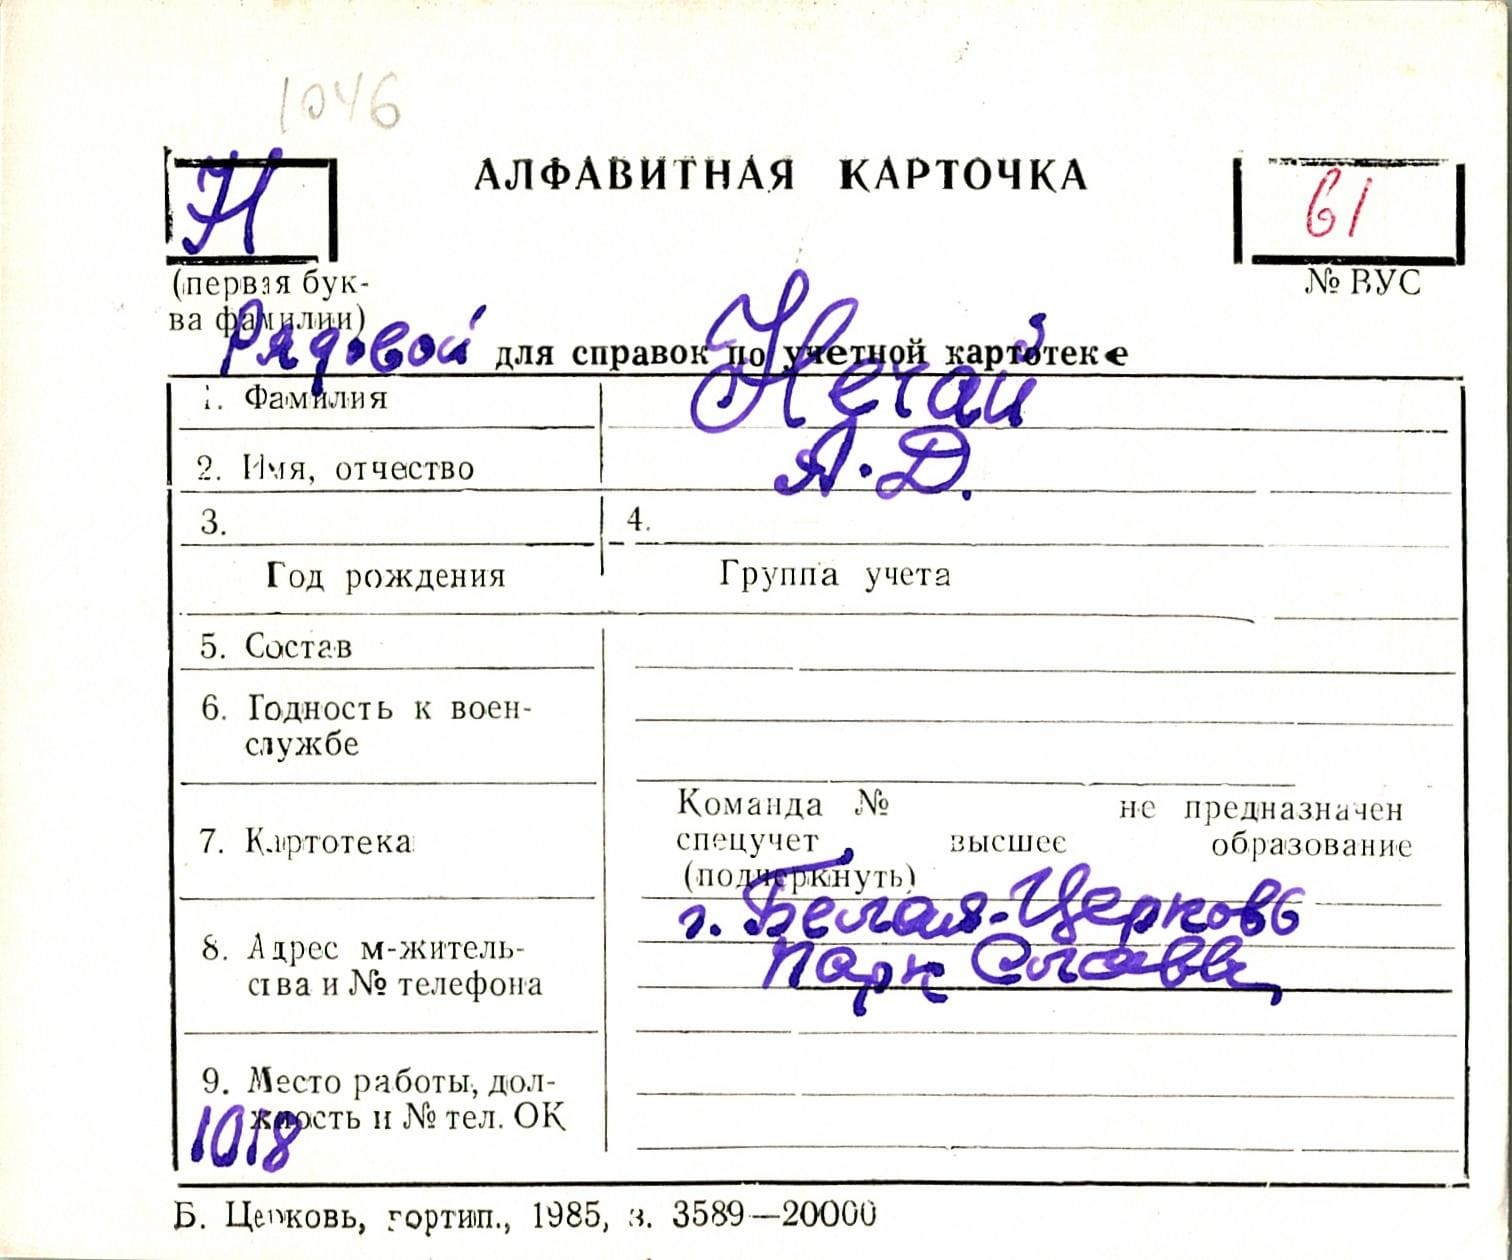 1046
Н
АЛФАВИТНАЯ КАРТОЧКА
61
(первая бук-
ва фамилии)
№ ВУС
Рядовой для справок по учетной картотеке
1. Фамилия Нечай
2. Имя, отчество А. Д.
3. 4.
Год рождения Группа учета
5. Состав
6. Годность к воен-
службе
7. Картотека
Команда № не предназначен
спецучет, высшее образование
(подчеркнуть)
8. Адрес м-житель-
ства и № телефона
г. Белая-Церковь
Парк Славы
9. Место работы, дол-
жность и № тел. ОК
1018
Б. Церковь, гортип., 1985, з. 3589—20000